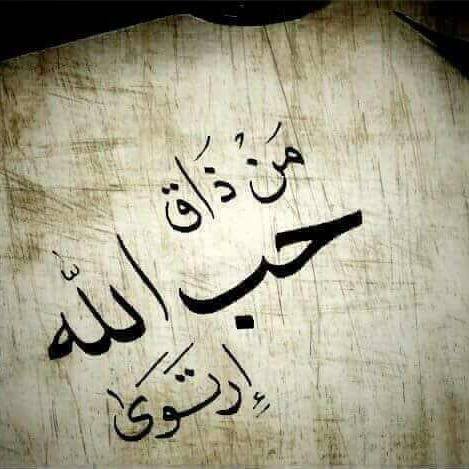 مَنْ ذَاق
حب الله
إِرتَوَىٰ